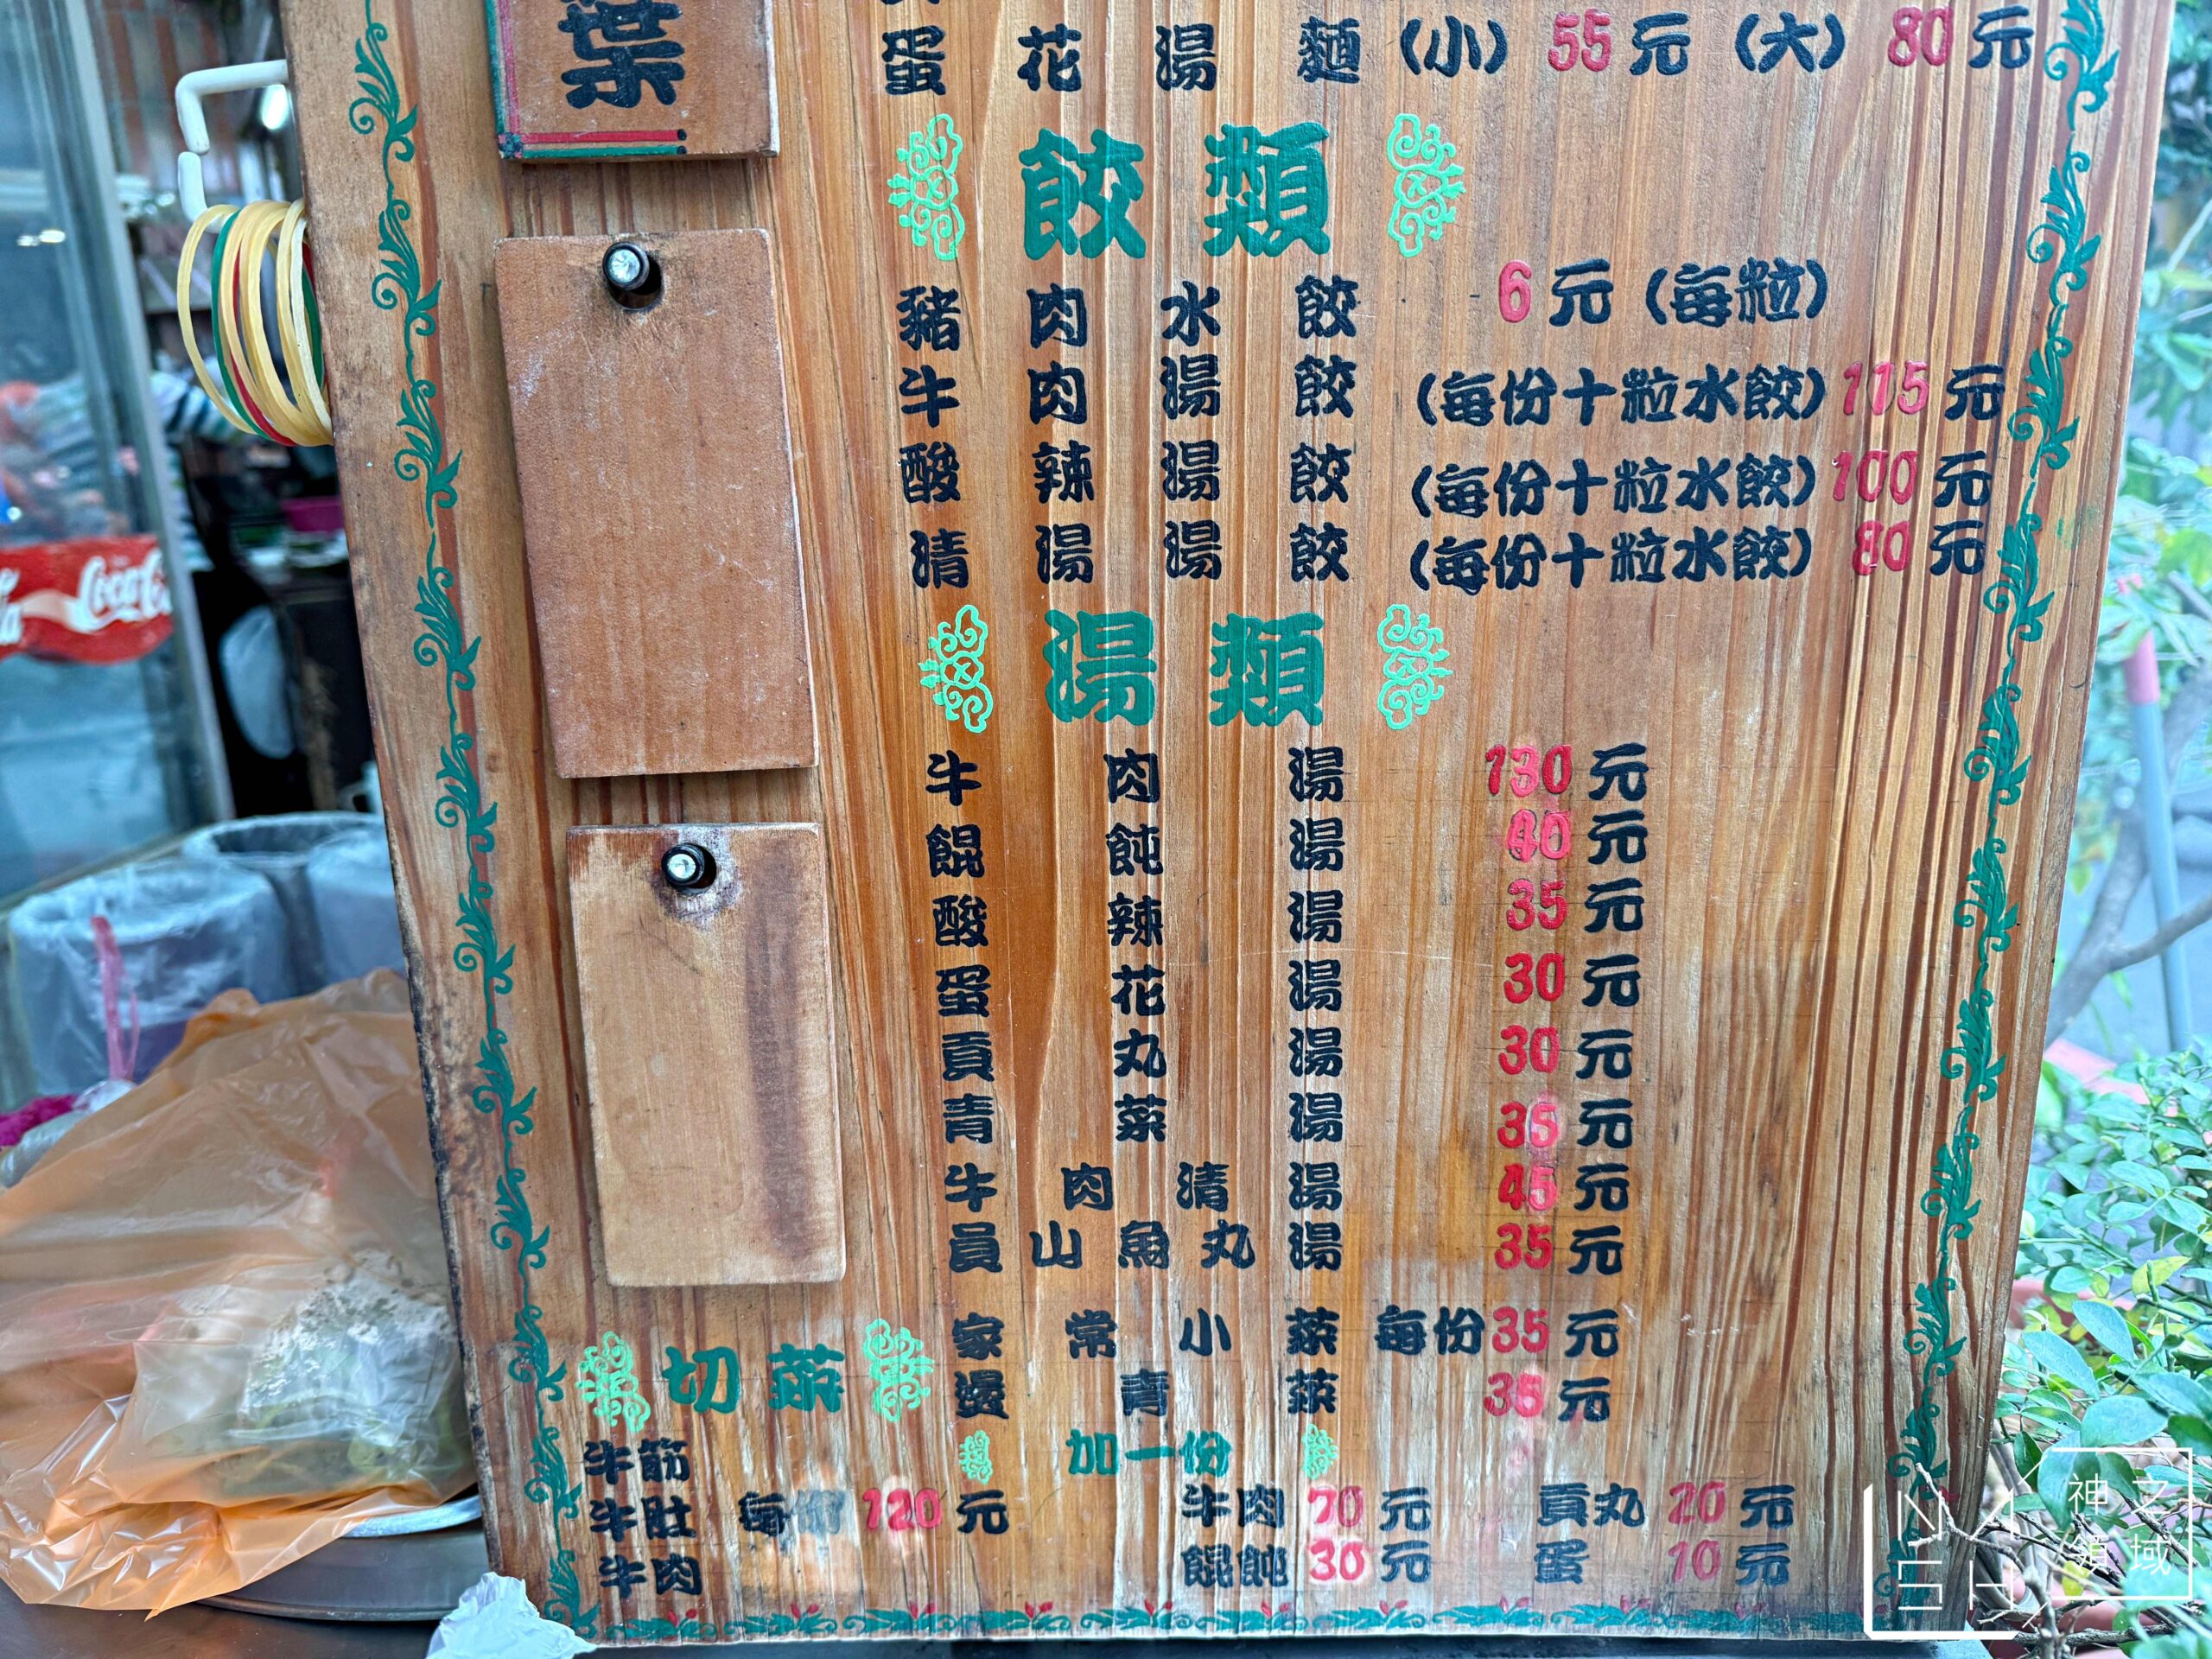 葉
蛋花湯麵(小)55元(大)80元
餃類
豬肉水餃 6元(每粒)
牛肉湯餃(每份十粒水餃)115元
酸辣湯餃(每份十粒水餃)100元
清湯湯餃(每份十粒水餃)80元
湯類
牛肉湯 130元
餛飩湯 40元
酸辣湯 35元
蛋花湯 30元
貢丸湯 30元
青菜湯 35元
牛肉清湯 45元
員山魚丸湯 35元
切菜
家常小菜 每份35元
燙青菜 35元
牛筋
牛肚 每份120元
牛肉
加一份
牛肉70元 貢丸20元
餛飩30元 蛋10元
Coca-C
神之領域